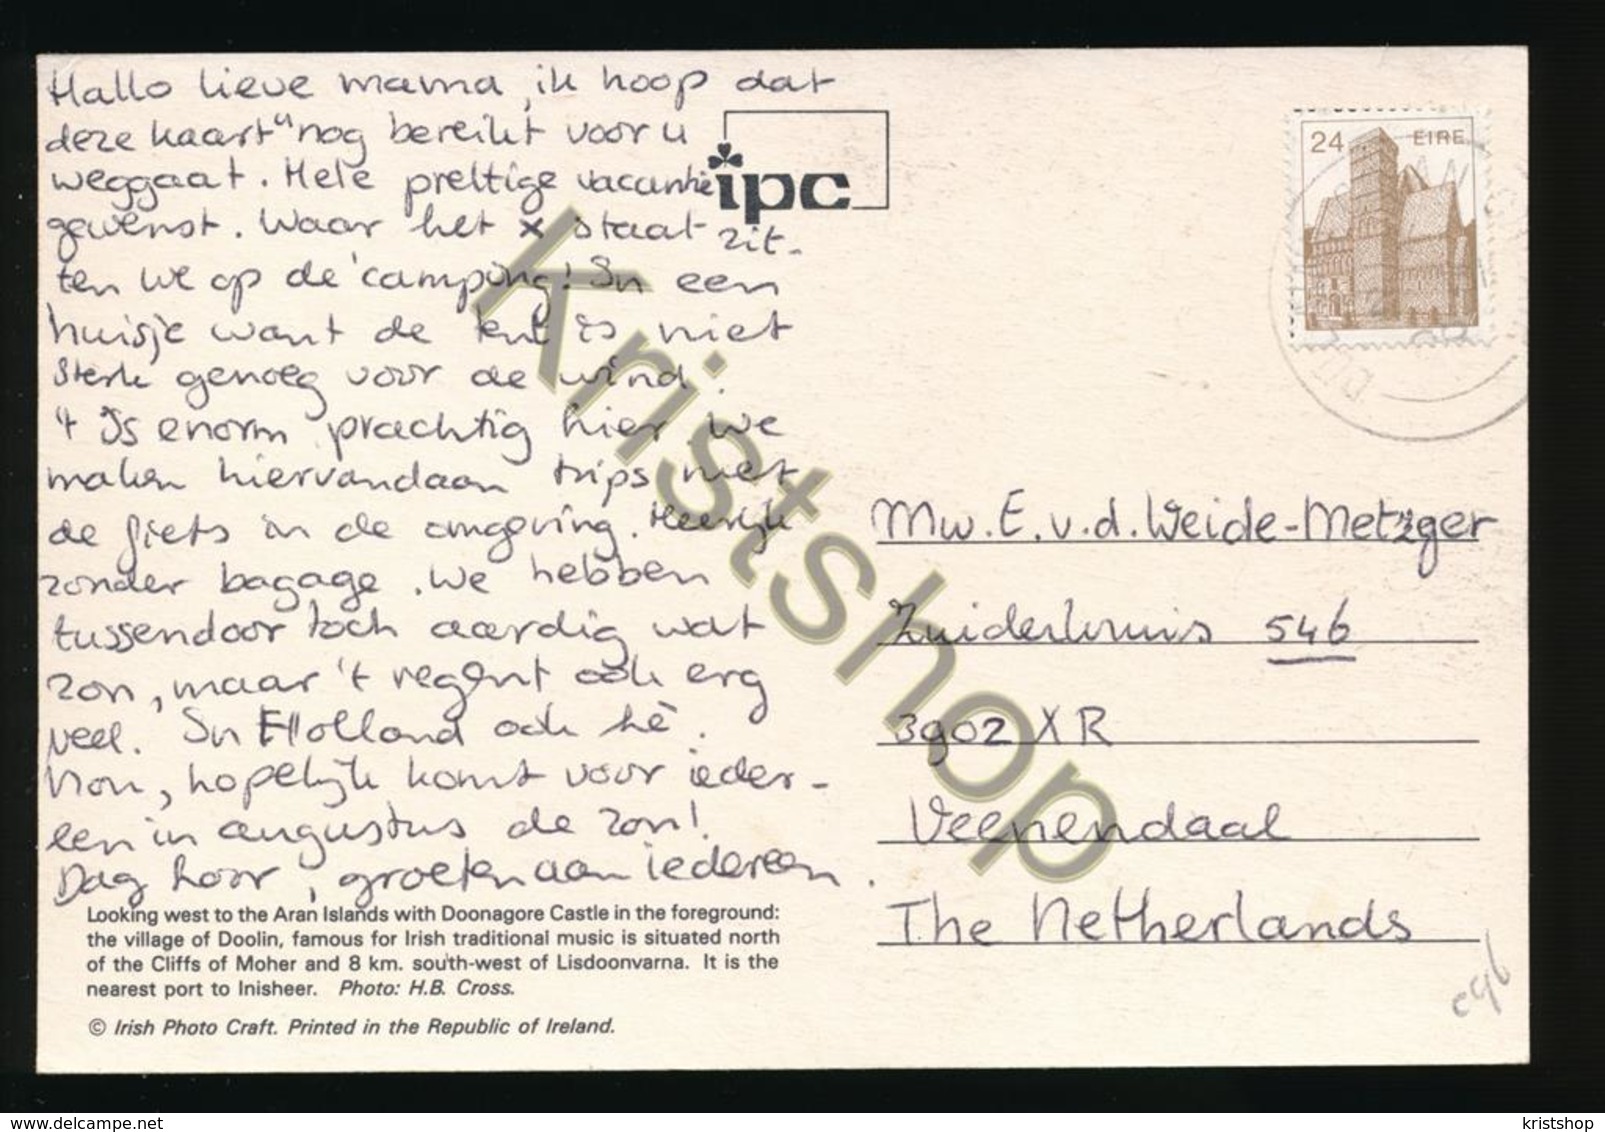 Hallo lieve mama, ik hoop dat
deze kaart u nog bereikt voor u
weggaat. Hele prettige vacantie
gewenst. Waar het x staat zit-
ten we op de camping! In een
huisje want de tent is niet
sterk genoeg voor de wind.
't Is enorm prachtig hier. We
maken hiervandaan trips met
de fiets in de omgeving. Heerlijk
zonder bagage. We hebben
tussendoor toch aardig wat
zon, maar 't regent ook erg
veel. In Holland ook hè.
Nou, hopelijk komt voor ieder-
een in augustus de zon!
Dag hoor, groeten aan iedereen.
Looking west to the Aran Islands with Doonagore Castle in the foreground:
the village of Doolin, famous for Irish traditional music is situated north
of the Cliffs of Moher and 8 km. south-west of Lisdoonvarna. It is the
nearest port to Inisheer. Photo: H.B. Cross.
© Irish Photo Craft. Printed in the Republic of Ireland.
ipc
24 EIRE
Mw. E. v.d. Weide-Metzger
Zuiderkruis 546
3902 XR
Veenendaal
The Netherlands
c96
Kristshop
www.delcampe.net
kristshop